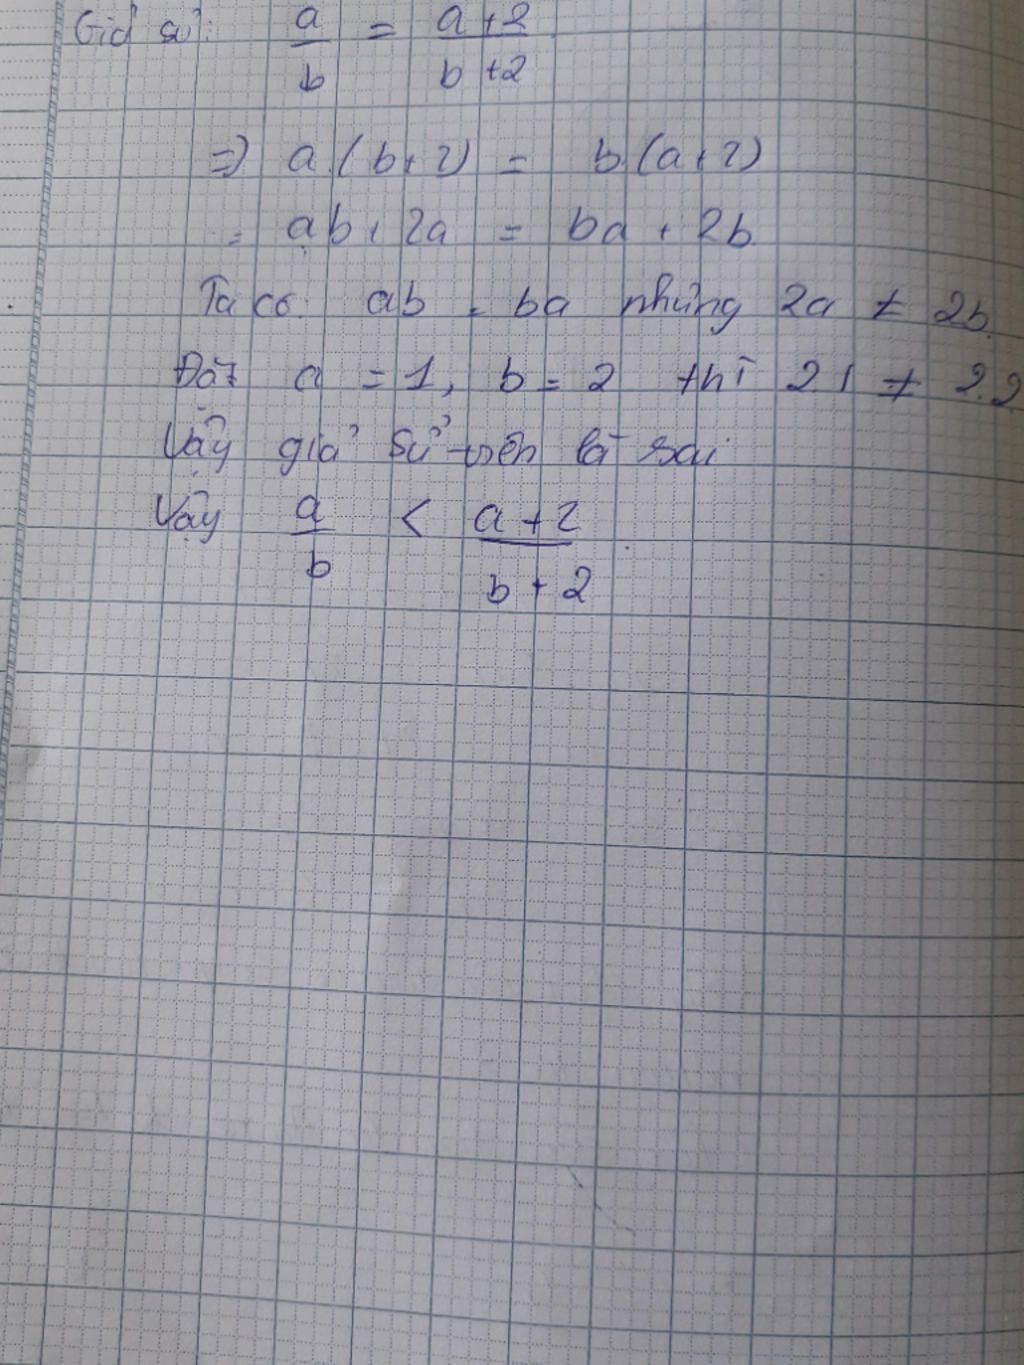 Giả sử: a/b = a+2/b+2
=> a.(b+2) = b.(a+2)
= ab+2a = ba + 2b
Ta có: ab = ba nhưng 2a ≠ 2b
Đặt a = 1, b = 2 thì 2.1 ≠ 2.2
Vậy giả sử trên là sai
Vậy a/b < a+2/b+2